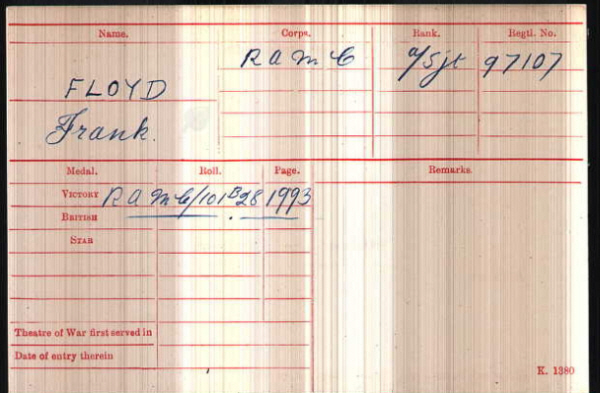 Name. Corps. Rank. Regtl. No.
R A M C a/Sjt 97107
FLOYD
Frank.
Medal. Roll. Page. Remarks.
VICTORY R A M C/101B28 1993
BRITISH
STAR
Theatre of War first served in
Date of entry therein
K. 1380